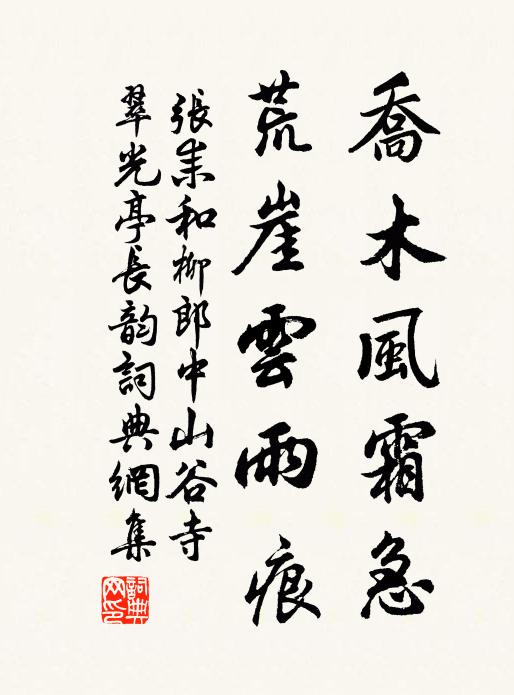 喬木風霜急
荒崖雲雨痕
張耒和柳郎中山谷寺
翠光亭長韵詞典網集
詞典網印